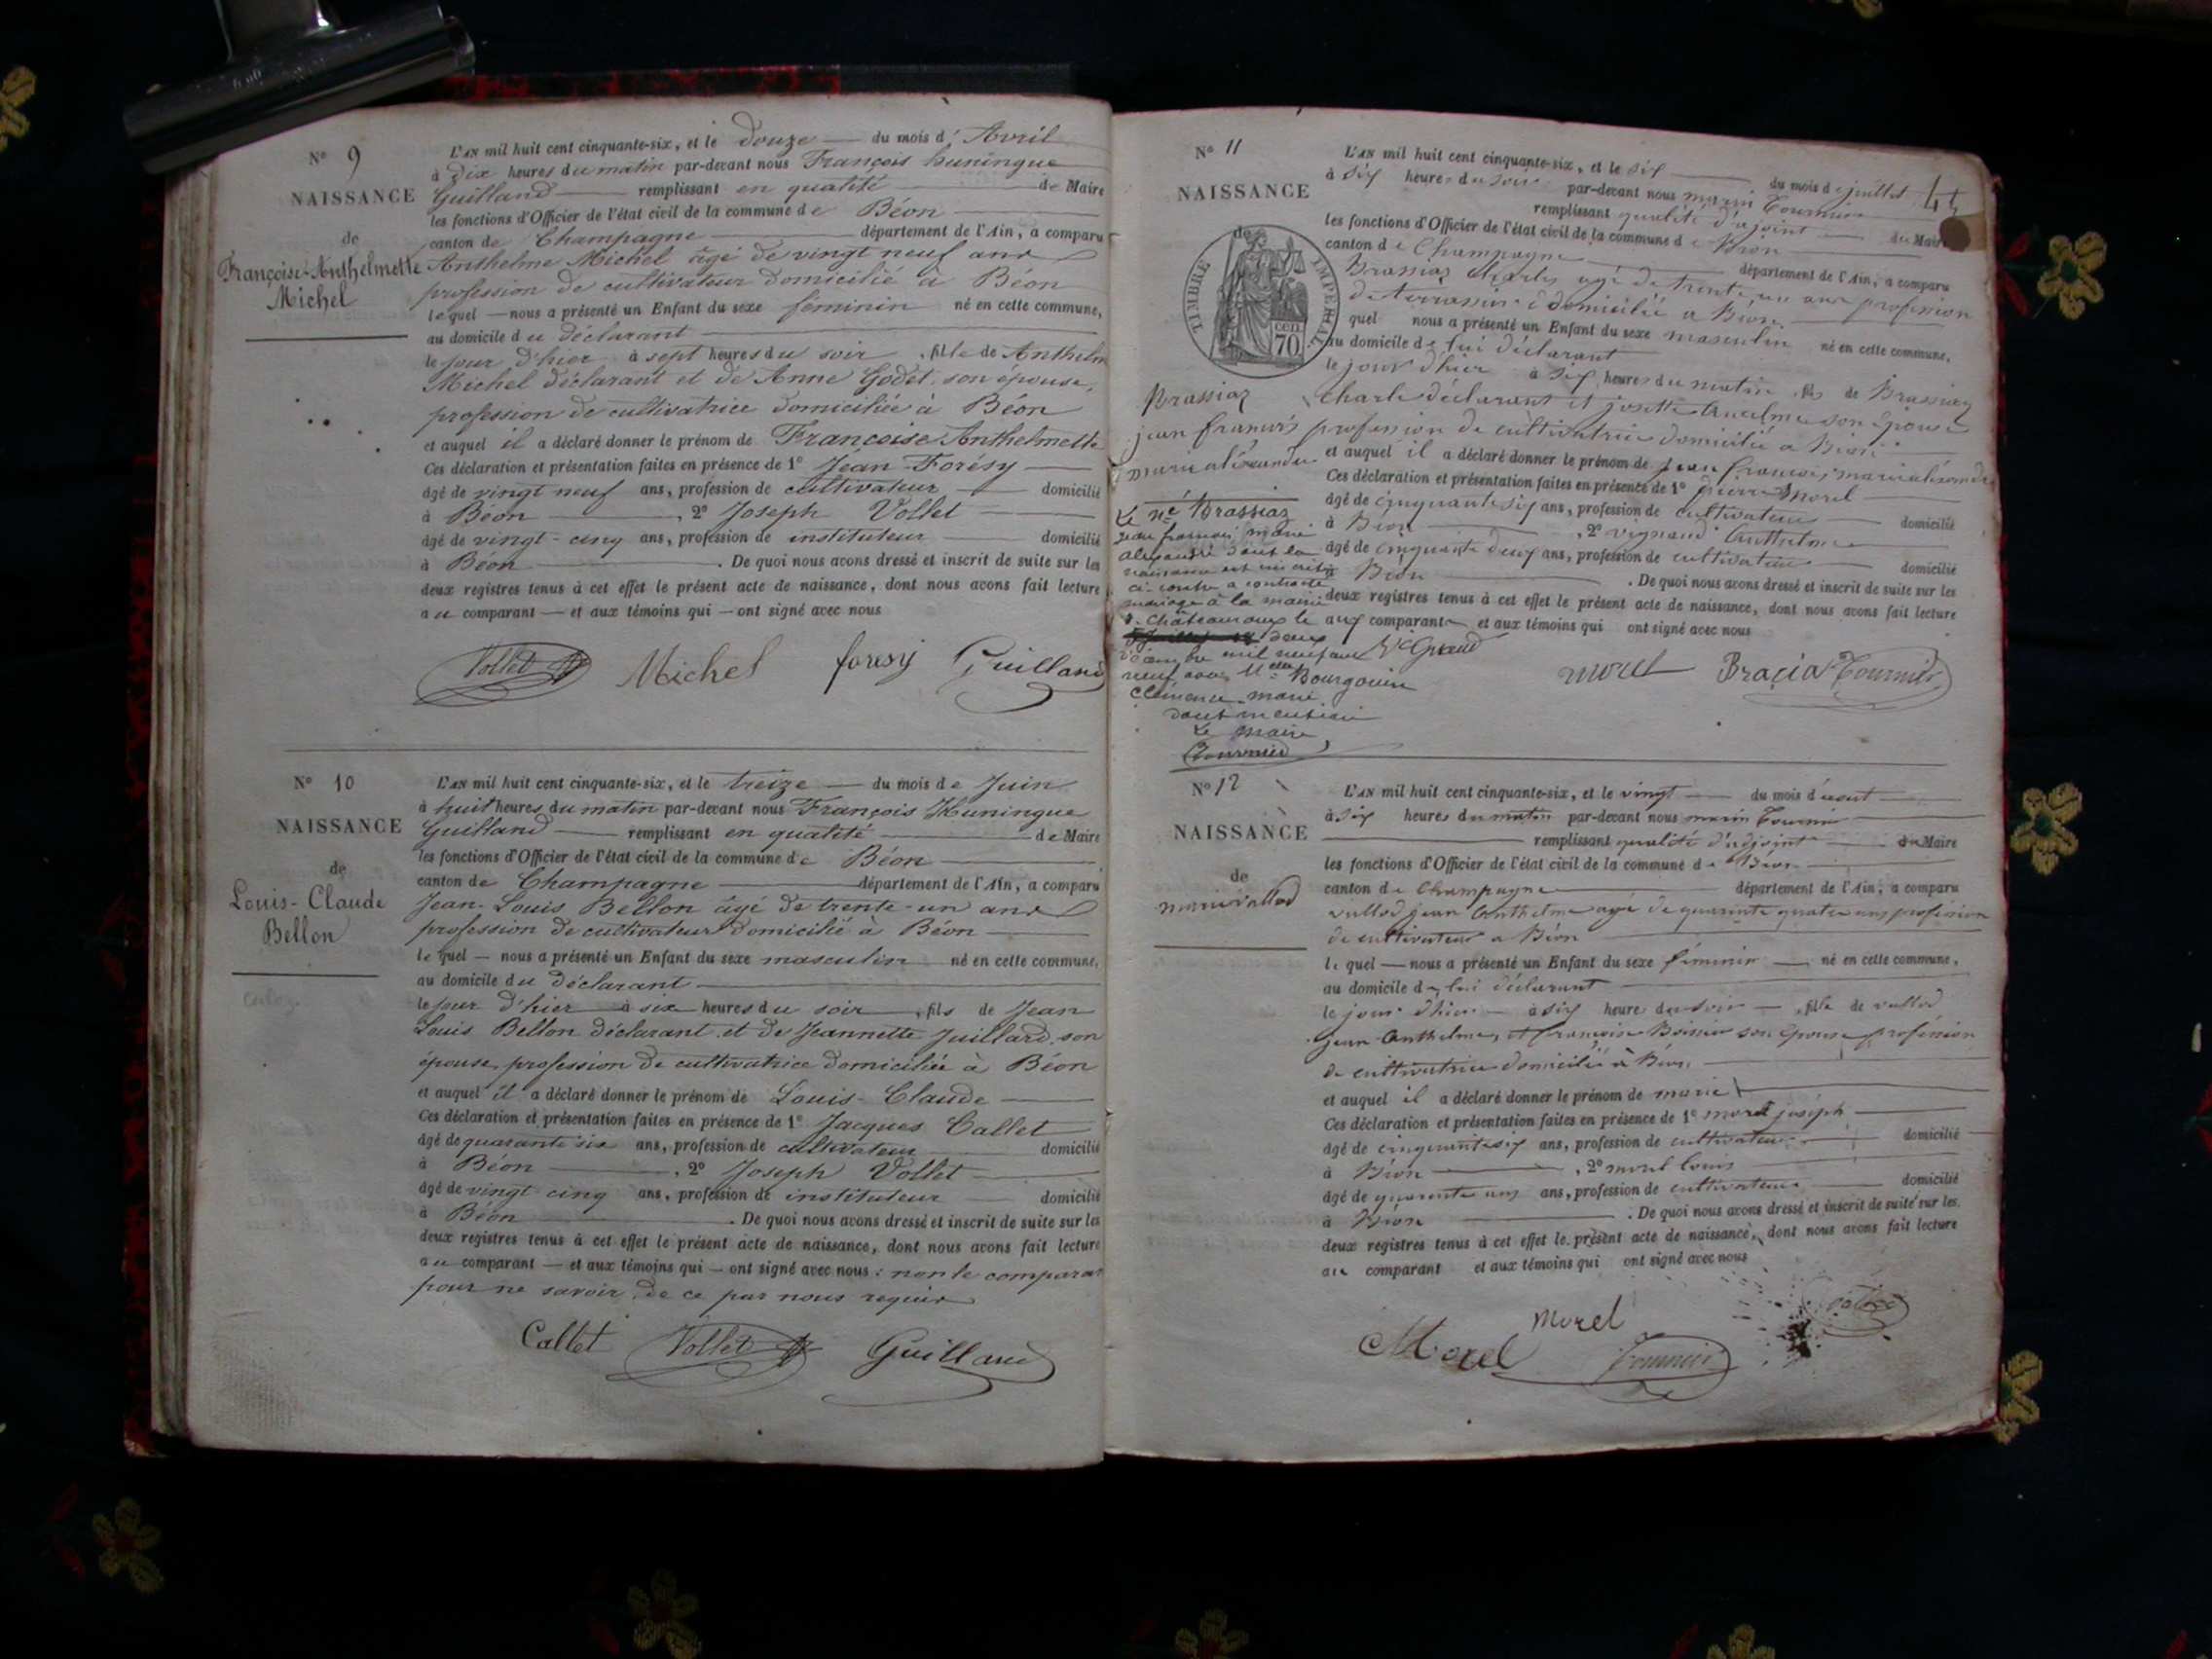 N° 9
NAISSANCE
de
Françoise-Anthelmette
Michel
L'AN mil huit cent cinquante-six, et le douze du mois d'Avril
à dix heures du matin par-devant nous François huningue
Guilland remplissant en qualité de Maire
les fonctions d'Officier de l'état civil de la commune de Béon
canton de Champagne département de l'Ain, a comparu
Anthelme Michel âgé de vingt neuf ans
profession de cultivateur domicilié à Béon
lequel nous a présenté un Enfant du sexe féminin né en cette commune,
au domicile du déclarant
le jour d'hier à sept heures du soir, fille de Anthelm
Michel déclarant et de Anne Godet son épouse,
profession de cultivatrice domiciliée à Béon
et auquel il a déclaré donner le prénom de Françoise Anthelmette
Ces déclaration et présentation faites en présence de 1° Jean Forésy
âgé de vingt neuf ans, profession de cultivateur domicilié
à Béon, 2° Joseph Vollet
âgé de vingt-cinq ans, profession de instituteur domicilié
à Béon. De quoi nous avons dressé et inscrit de suite sur les
deux registres tenus à cet effet le présent acte de naissance, dont nous avons fait lecture
au comparant et aux témoins qui ont signé avec nous
Vollet Michel foresy Guilland
N° 10
NAISSANCE
de
Louis-Claude
Bellon
L'AN mil huit cent cinquante-six, et le treize du mois de Juin
à huit heures du matin par-devant nous François Huningue
Guilland remplissant en qualité de Maire
les fonctions d'Officier de l'état civil de la commune de Béon
canton de Champagne département de l'Ain, a comparu
Jean-Louis Bellon âgé de trente-un ans
profession de cultivateur domicilié à Béon
lequel nous a présenté un Enfant du sexe masculin né en cette commune,
au domicile du déclarant
le jour d'hier à six heures du soir, fils de Jean
Louis Bellon déclarant et de Jeannette Juillard son
épouse, profession de cultivatrice domiciliée à Béon
et auquel il a déclaré donner le prénom de Louis-Claude
Ces déclaration et présentation faites en présence de 1° Jacques Callet
âgé de quarante six ans, profession de cultivateur domicilié
à Béon, 2° Joseph Vollet
âgé de vingt cinq ans, profession de instituteur domicilié
à Béon. De quoi nous avons dressé et inscrit de suite sur les
deux registres tenus à cet effet le présent acte de naissance, dont nous avons fait lecture
au comparant et aux témoins qui ont signé avec nous : non le comparant
pour ne savoir, de ce par nous requis
Callet Vollet Guilland
N° 11
NAISSANCE
de
TIMBRE IMPERIAL
cen. 70
Brassiaz
jean francois
marie aléxandre
Le né Brassiaz
Jean francois marie
alexandre dont la
naissance est inscrite
ci-contre a contracté
mariage à la mairie
de Châteauroux le
deux
mil neuf cent
neuf avec Melle Bourgouin
Clémence marie
dont mention
Le Maire
Tournier
44
L'AN mil huit cent cinquante-six, et le six du mois de juillet
à six heures du soir par-devant nous marin Tournier
remplissant qualité d'ajoint du Maire
les fonctions d'Officier de l'état civil de la commune de Béon
canton de Champagne département de l'Ain, a comparu
Brassiaz charles agé de trente un ans profession
de terrassier domicilié a Béon
quel nous a présenté un Enfant du sexe masculin né en cette commune,
au domicile de lui déclarant
le jour d'hier à six heures du matin, fils de Brassiaz
Charle déclarant et josette Anselme son épouse
profession de cultivatrice domicilié a Béon
et auquel il a déclaré donner le prénom de jean francois marie aléxandre
Ces déclaration et présentation faites en présence de 1° pierre Morel
âgé de cinquante six ans, profession de cultivateur domicilié
à Béon, 2° vignand Anthelme
âgé de cinquante deux ans, profession de cultivateur domicilié
Béon. De quoi nous avons dressé et inscrit de suite sur les
deux registres tenus à cet effet le présent acte de naissance, dont nous avons fait lecture
aux comparant et aux témoins qui ont signé avec nous
morel Bracia Tournier
N° 12
NAISSANCE
de
marie vallod
L'AN mil huit cent cinquante-six, et le vingt du mois d'aout
à six heures du matin par-devant nous marin Tournier
remplissant qualité d'adjoint du Maire
les fonctions d'Officier de l'état civil de la commune de Béon
canton de Champagne département de l'Ain, a comparu
vallod jean Anthelme agé de quarante quatre ans profession
de cultivateur a Béon
le quel nous a présenté un Enfant du sexe féminin né en cette commune,
au domicile de lui déclarant
le jour d'hier à six heure du soir, fille de vallod
jean Anthelme, et françoise Boissier son épouse profession
de cultivatrice domicilié à Béon
et auquel il a déclaré donner le prénom de marie
Ces déclaration et présentation faites en présence de 1° morel joséph
âgé de cinquante six ans, profession de cultivateur domicilié
à Béon, 2° morel louis
âgé de quarante ans, profession de cultivateur domicilié
à Béon. De quoi nous avons dressé et inscrit de suite sur les
deux registres tenus à cet effet le présent acte de naissance, dont nous avons fait lecture
au comparant et aux témoins qui ont signé avec nous
Morel morel Tournier vallod